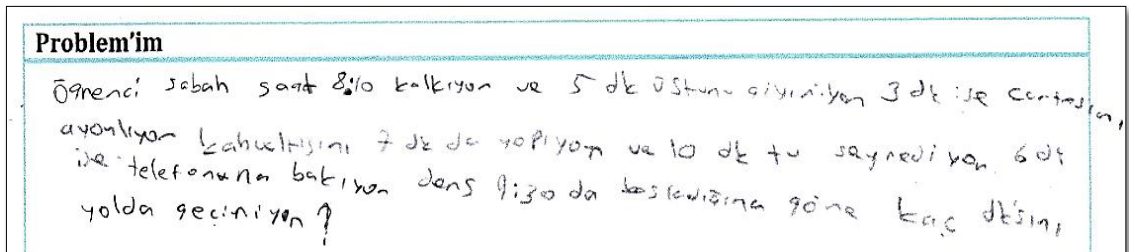 Problem'im
Öğrenci sabah saat 8:10 kalkıyor ve 5 dk üstünü giyiniyor 3 dk ise çantasını
ayarlıyor kahvaltısını 7 dk da yapıyor ve 10 dk tv seyrediyor 6 dk
ise telefonuna bakıyor ders 9:30 da başladığına göre kaç dk'sını
yolda geçiriyor?